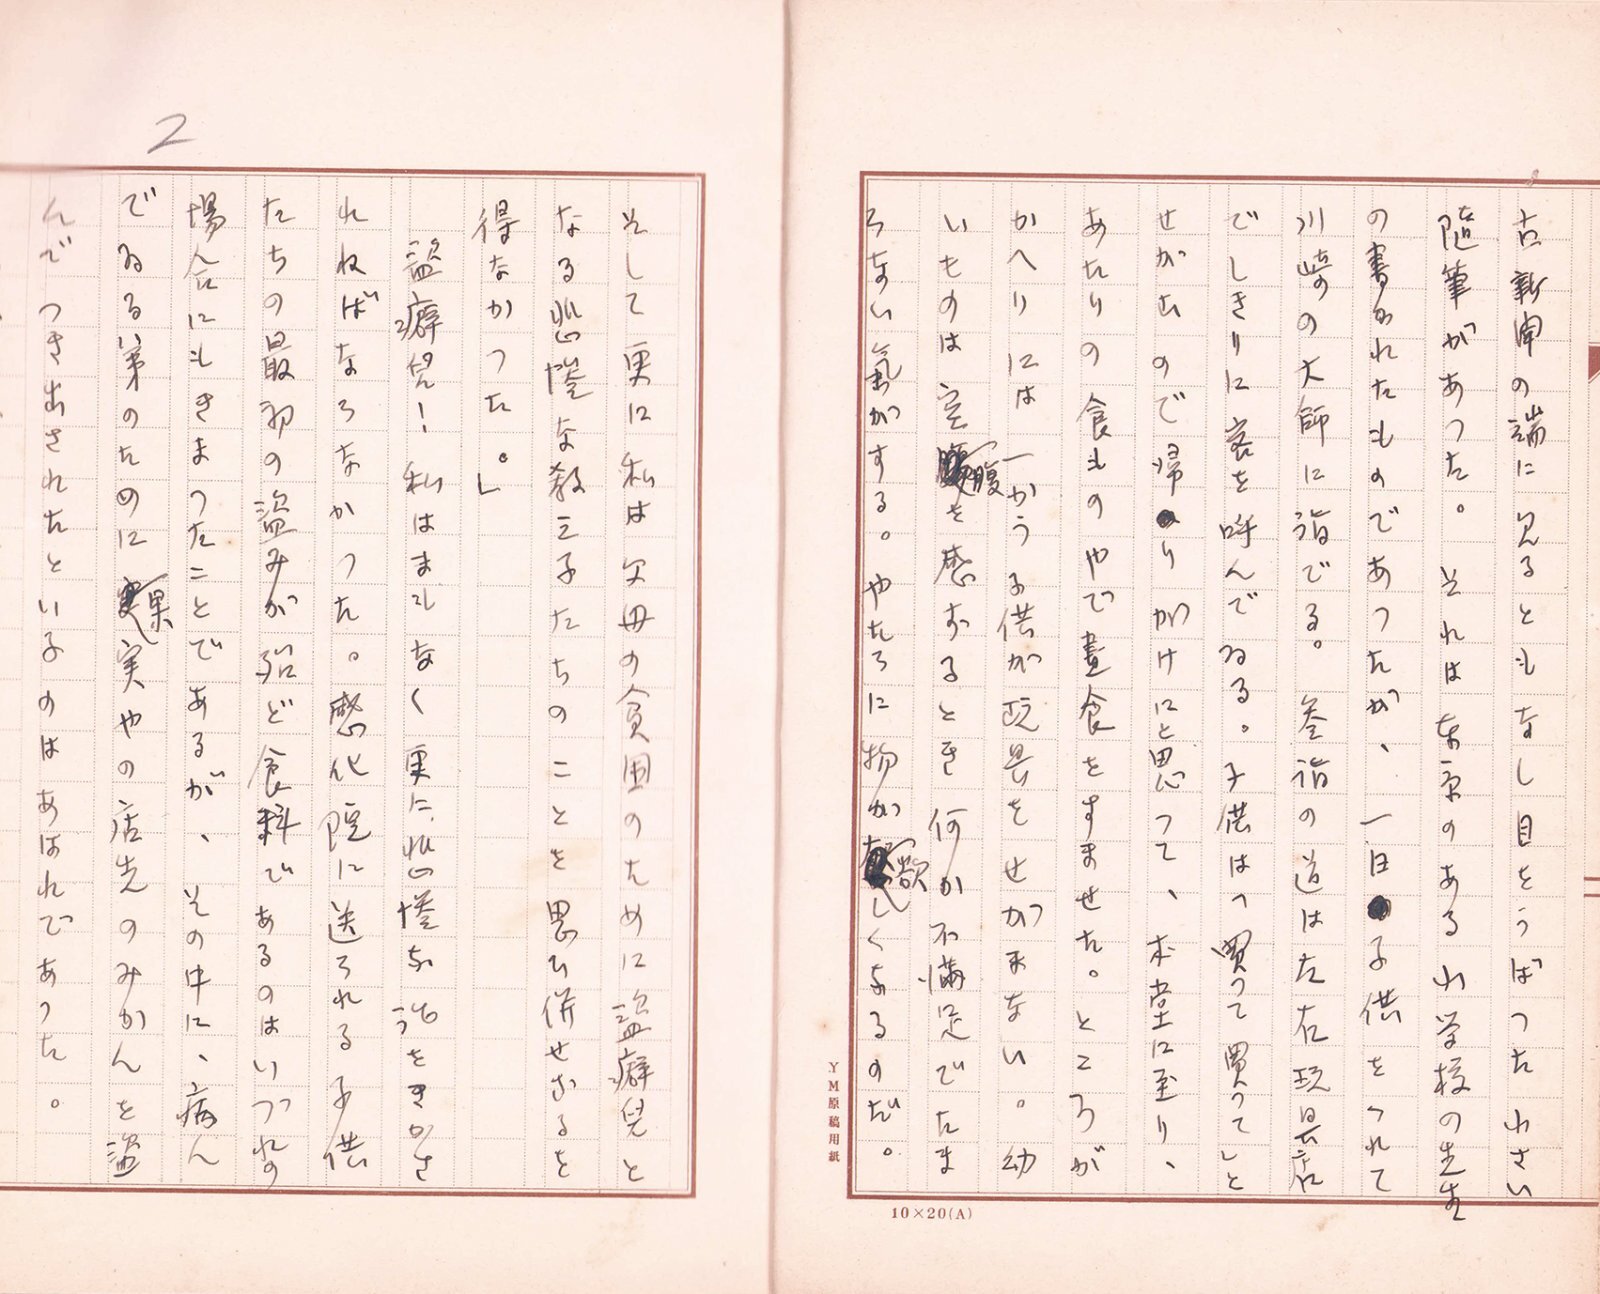 古新聞の端に見るともなし目をうばつた小さい
随筆があつた。それは東京のある小学校の先生
の書かれたものであつたが、一日子供をつれて
川崎の大師に詣でる。参詣の道は左右玩具店
でしきりに客を呼んでゐる。子供はつ買つて買つてしと
せがむので帰りがけにと思つて、本堂に至り、
あたりの食ものやで昼食をすませた。ところが
かへりには一かうる供が玩具をせがまない。幼
いものは空腹を感ずるとき何か不満足でたま
らない気がする。やたらに物が欲しくなるのだ。
YM原稿用紙
10×20(A)
2
そして更に私は父母の貧困のために盗癖児と
なる悲惨な教え子たちのことを思ひ併せざるを
得なかつた。」
盗癖児！私はまもなく更に悲惨な話をきかさ
れねばならなかつた。感化院に送られる子供
たちの最初の盗みが殆ど食料であるのはいづれの
場合にもきまつたことであるが、その中に、病ん
でゐる弟のために果実やの店先のみかんを盗
んでつき出されたといふのはあはれであつた。